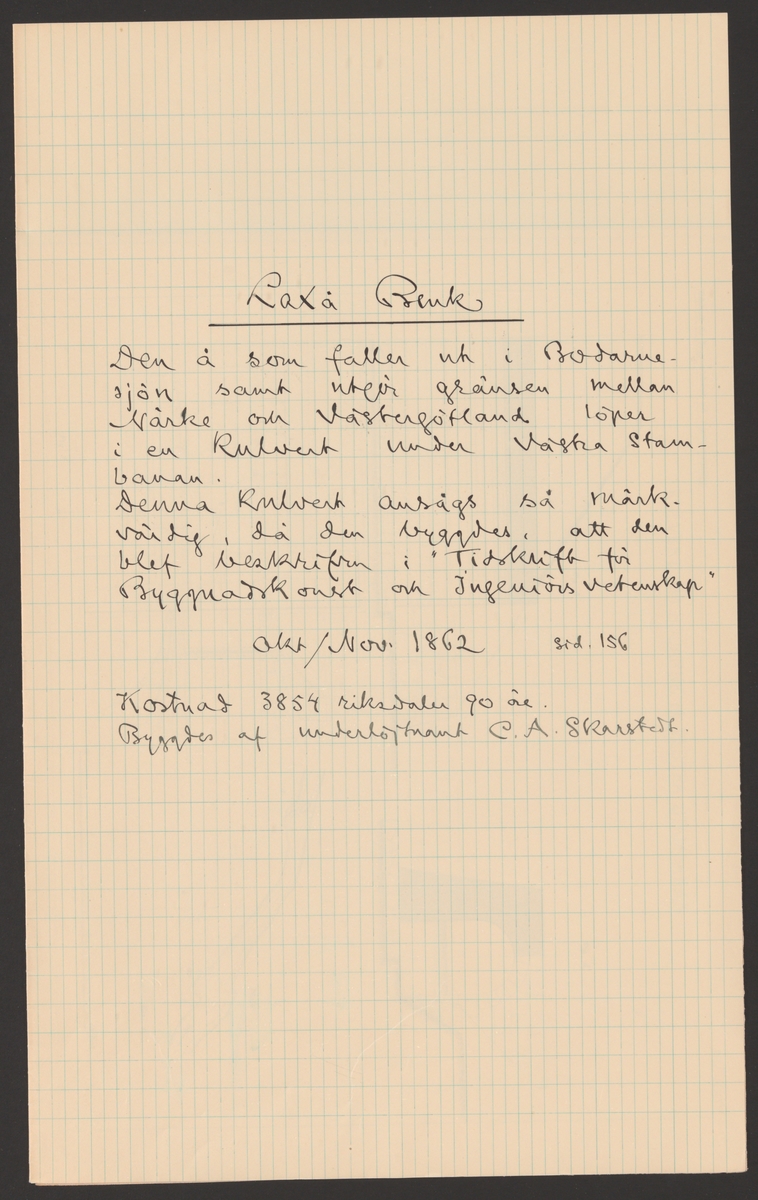 Laxå Bruk
Den å som faller ut i Bodarne-
sjön samt utgör gränsen mellan
Närke och Västergötland löper
i en kulvert under Västra Stam-
banan.
Denna kulvert ansågs så märk-
värdig, då den byggdes, att den
blef beskrifven i "Tidskrift för
Byggnadskonst och Ingeniörsvetenskap"
Okt/Nov. 1862 sid. 156
Kostnad 3854 riksdaler 90 öre.
Byggdes af underlöjtnant C. A. Skarstedt.